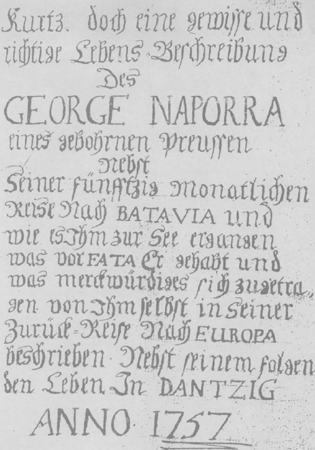 Kurtz. doch eine gewisse und
richtige Lebens-Beschreibung
Des
GEORGE NAPORRA
eines gebohrnen Preussen
Nebst
Seiner fünfftzig Monatlichen
Reise Nach BATAVIA und
wie es Ihm zur See ergangen
was vor FATA Er gehabt und
was merckwürdiges sich zugetra-
gen von Ihm selbst in Seiner
Zurück-Reise Nach EUROPA
beschrieben. Nebst seinem folgen
den Leben In DANTZIG
ANNO 1757